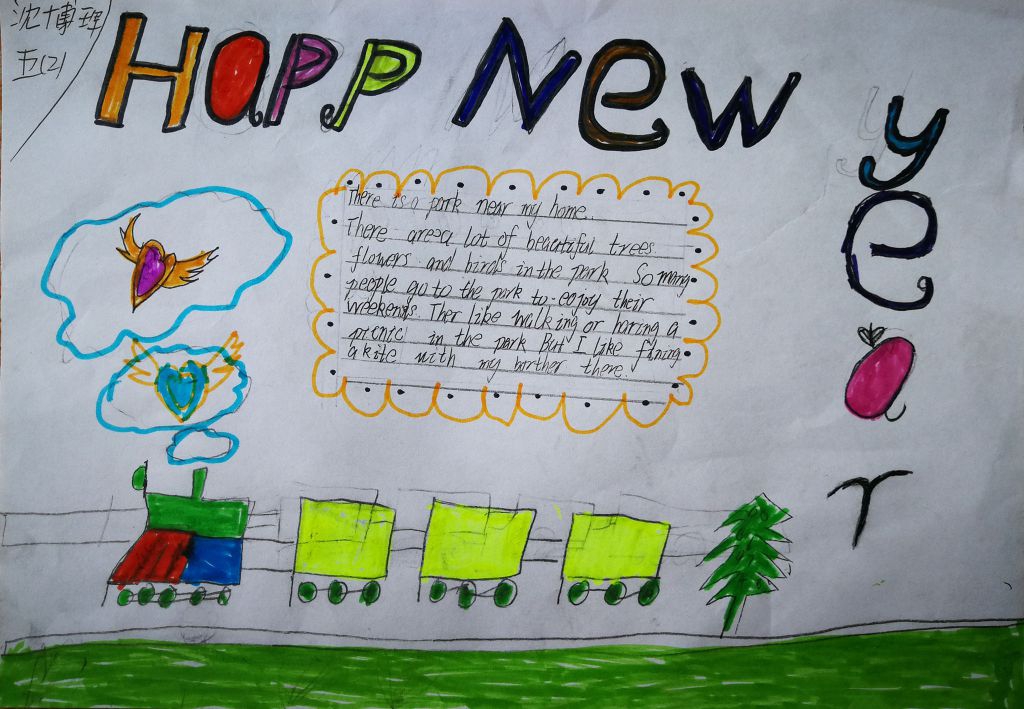 沈博理
五(2)
Happ New
year
There is a park near my home.
There are a lot of beautiful trees
flowers and birds in the park So many
people go to the park to enjoy their
weekends. Ther like walking or haring a
picnic in the park But I like fining
a kite with my borther there.